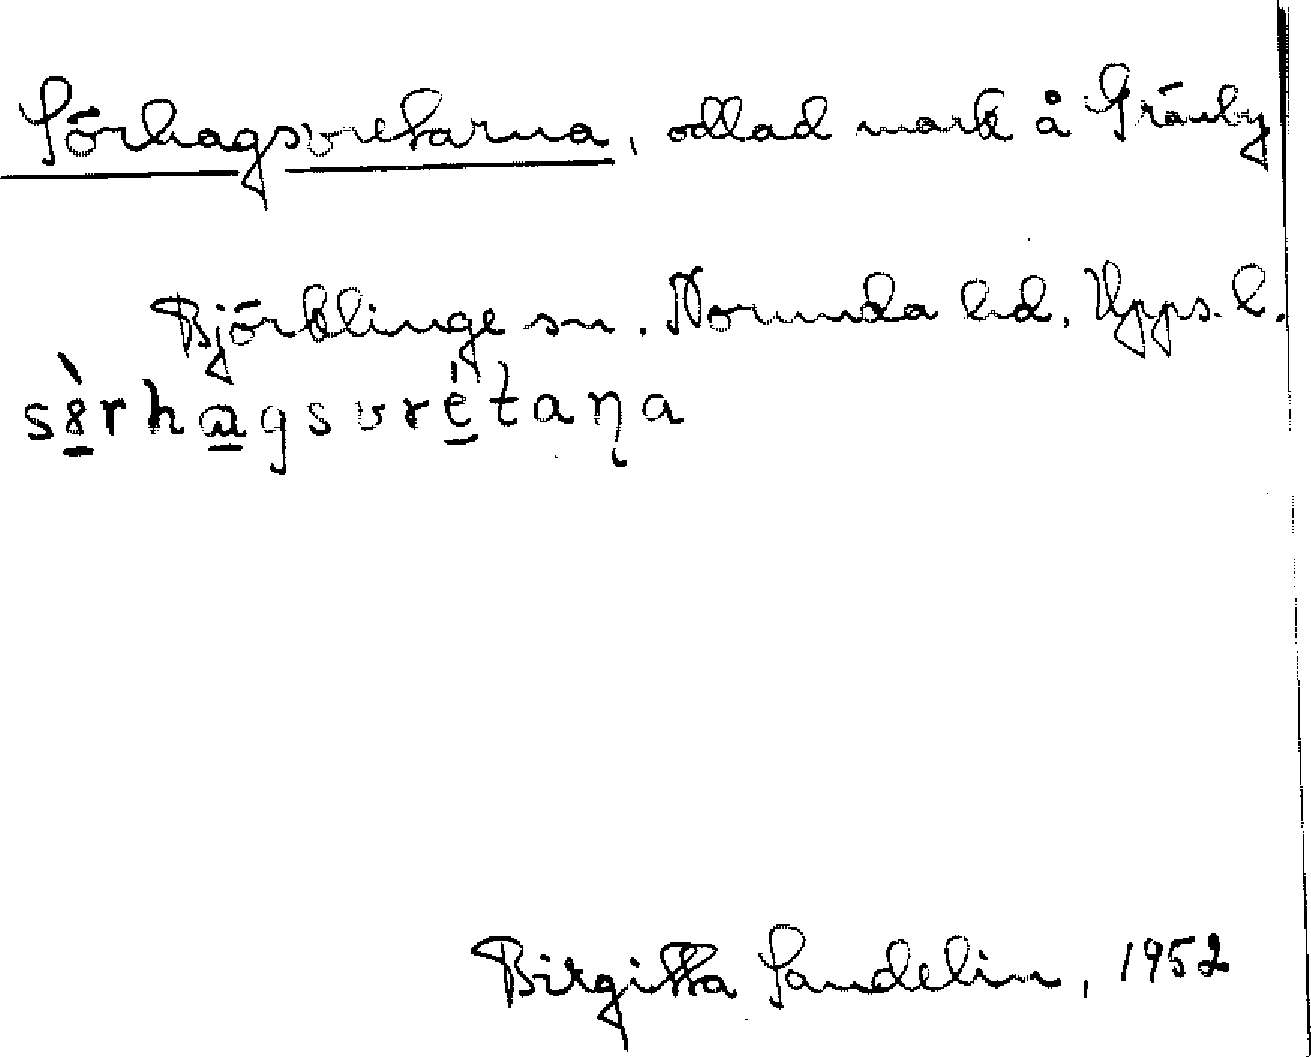 Sörhagsvretarna, odlad mark å Gränby
Björklinge sn. Norunda hd. Upps. l.
sè̱rha̱gsvré̱taηa
Birgitta Sandelin, 1952